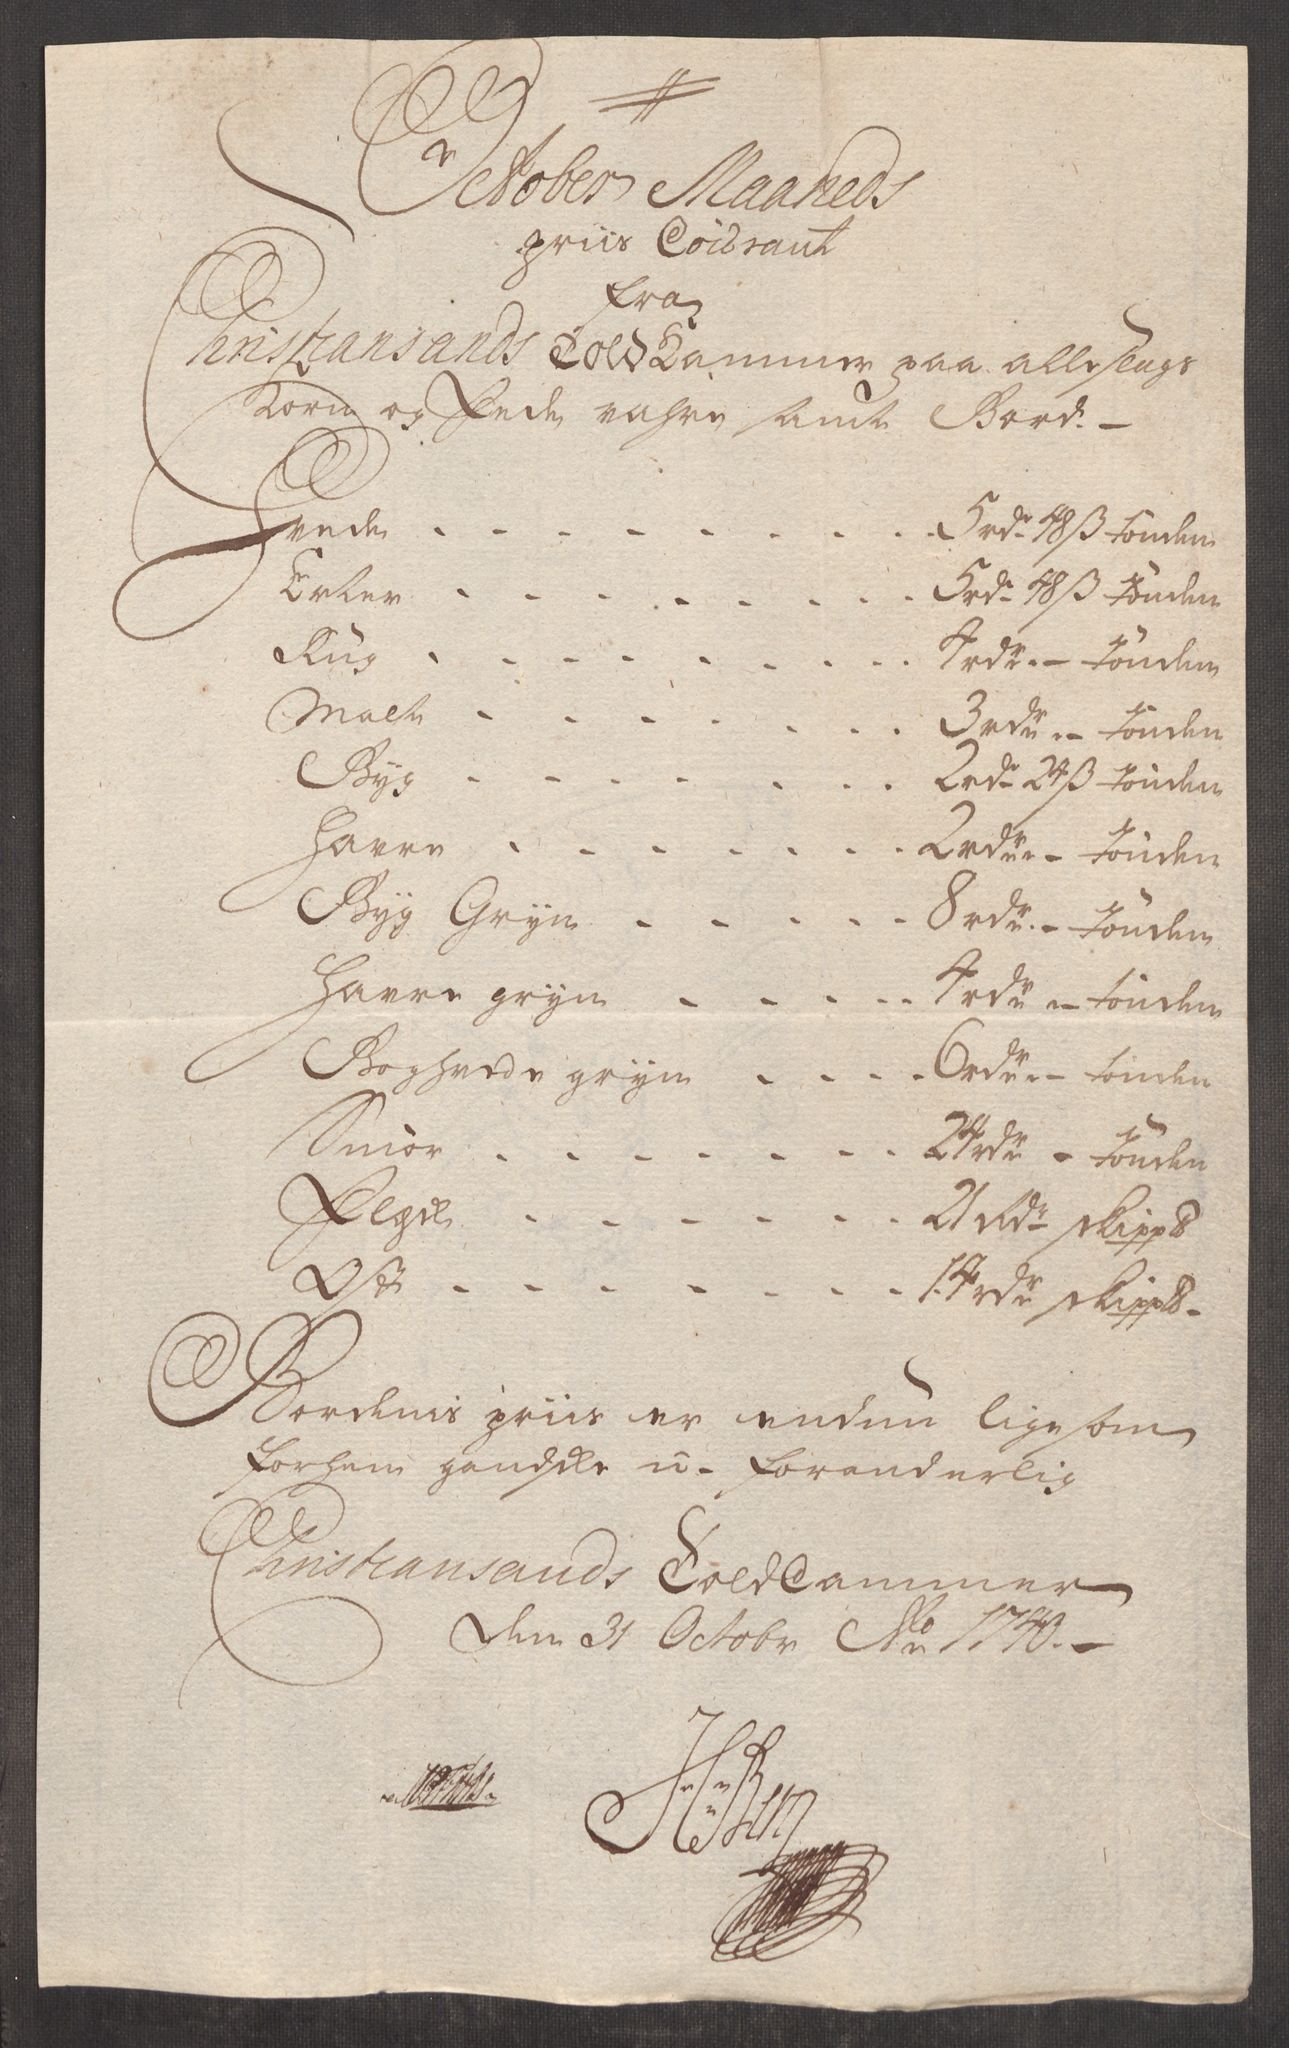 October Maaneds
priis Coürant
fra
Christiansands Told Cammer paa alle slags
Korn og Fede vahre samt Bord. -
Hvede . . . . . . . . 5 rd. 48 ß tönden
Erter . . . . . . . . 5 rd. 48 ß tönden
Rüg . . . . . . . . 4 rdr. - tönden
Malt . . . . . . . 3 rdr. - tönden
Byg . . . . . . . 2 rd. 24 ß tönden
Havre . . . . . . . 2 rdr. - tönden
Byg Gryn . . . . . 8 rdr. - tönden
Havre gryn . . . . . 4 rdr. - tönden
Boghvede gryn . . . . 6 rdr. - tönden
Smör . . . . . . . 24 rdr. - tönden
Flesk . . . . . . . 21 Rdr. skipp℔
Ost . . . . . . . 14 rdr. skipp℔.
Bordenis priis er endnu ligesom
forhen gandske u-foranderlig
Christiansands Told Cammer
den 31 Octobr Ao 1740. -